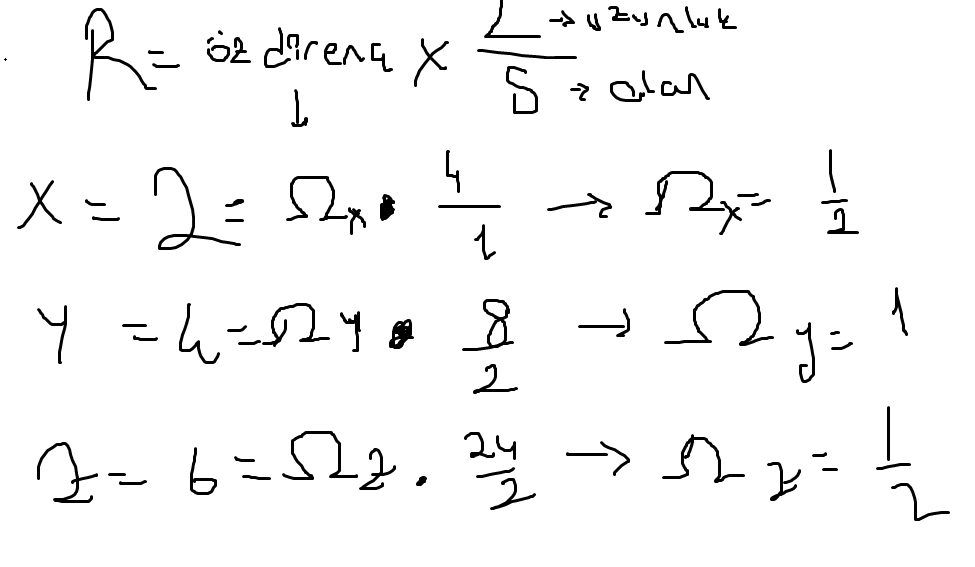 R = öz direnç × L/S → uzunluk → alan
↓
X = 2 = Ωx . 4/1 → Ωx = 1/2
Y = 4 = Ωy . 8/2 → Ωy = 1
Z = 6 = Ωz . 24/2 → Ωz = 1/2